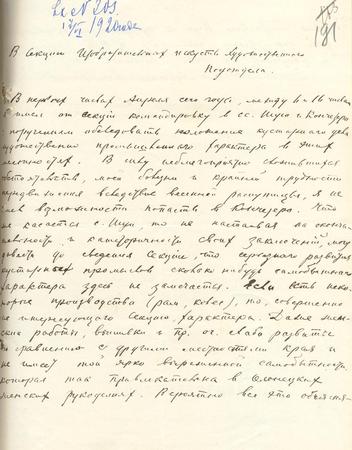 Вх № 203
17/VI 1920 года
191
В секцию Изобразительных искусств Художественного
Подотдела.
В первых числах Апреля сего года, между 6 и 16 числами
я имел от секции командировку в сс. Шую и Кончезеро
с поручением обследовать положение кустарного дела
художественно промышленного характера в этих
местностях. В силу неблагоприятно сложившихся
обстоятельств, моей болезни и крайней трудности
передвижения вследствие весенней распутицы, я не
имел возможности попасть в Кончезеро. Что
же касается с. Шуи, то не настаивая на оконча-
тельности и категоричности своих заключений, могу
довести до сведения Секции, что серьезного развития
кустарных промыслов сколько нибудь самобытного
характера здесь не замечается. Если есть неко-
торые производства (рам, ковес), то совершенно
не интересующего Секцию характера. Далее жен-
ские работы, вышивки и пр. оч. слабо развиты
по сравнению с другими местностями края и
не имеют той ярко выраженной самобытности,
которая так привлекательна в олонецких
женских рукоделиях. Вероятно все это объясня-